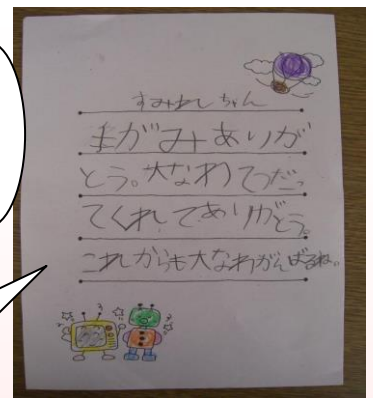 すみれちゃん
手がみありが
とう。大なわてつだっ
てくれてありがとう。
これからも大なわがんばるね。